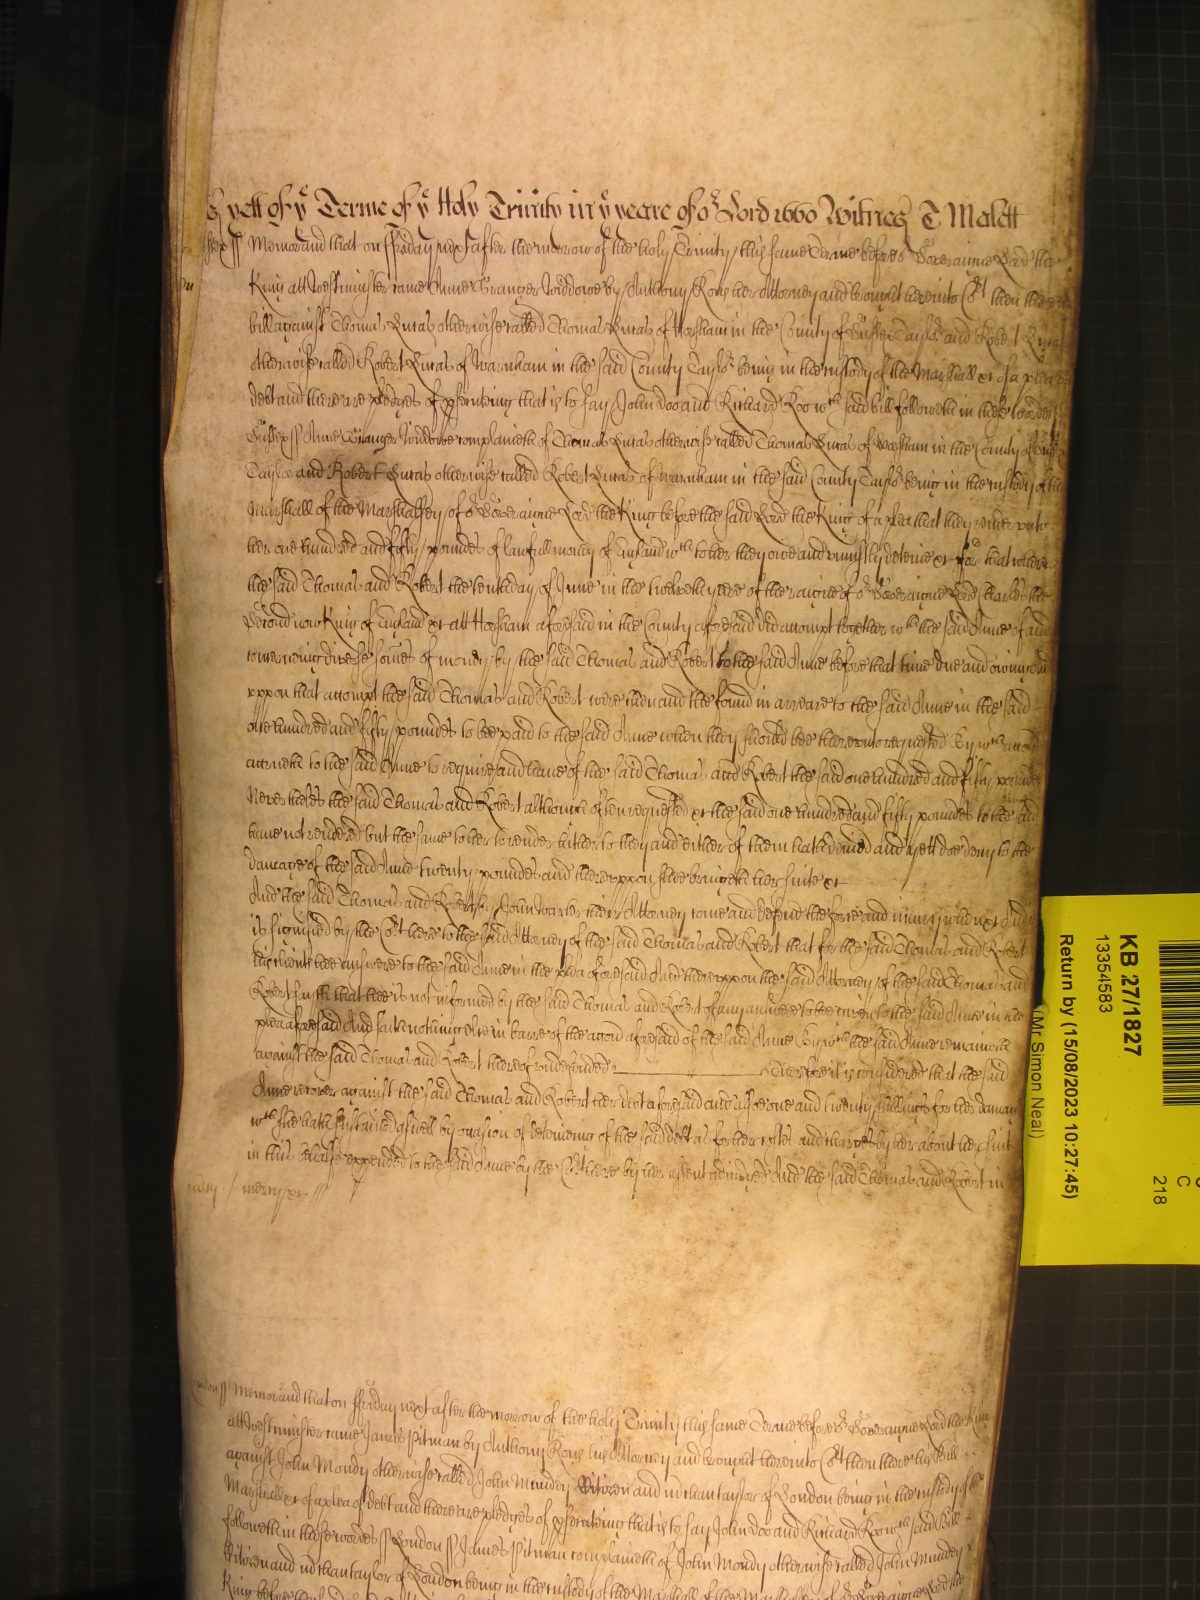 yett of ye Terme of ye Holy Trinity in ye yeare of or Lord 1660 Witnes T Malett
ssex ss Memorand that on ffriday next after the morrow of the holy Trinity this same Terme before or Soveraigne Lord the
King att Westminster came Anne Granger Widdowe by Anthony Rous her Attorney and brought here into Cot then there
bill against Thomas Lucas otherwise called Thomas Lucas of Horsham in the County of Sussex Taylor and Robert Lucas
otherwise called Robert Lucas of Warnham in the said County Taylor being in the custody of the Marshall xt of a plea
debt and there are pledges of psecuting that is to say John Doo and Richard Roo wch said bill followeth in these wordes
Sussex ss Anne Granger Widdowe complaineth of Thomas Lucas otherwise called Thomas Lucas of Horsham in the County of Sussex
Taylor and Robert Lucas otherwise called Robert Lucas of Warnham in the said County Taylor being in the custody of the
Marshall of the Marshallsey of or Soveraigne Lord the King before the said Lord the King of a plea that they render unto
her one hundred and fifty poundes of lawfull money of England wch to her they owe and uniustly deteine xt for that where
the said Thomas and Robert the tenth day of June in the twelveth yeare of the raigne of or Soveraigne Lord Charles the
Second now King of England xt att Horsham aforesaid in the County aforesaid did accompt together wth the said Anne of and
concerning diverse somes of money by the said Thomas and Robert to the said Anne before that time due and owing And
uppon that accompt the said Thomas and Robert were then and there found in arreare to the said Anne in the said
one hundred and fifty poundes to bee paid to the said Anne when they should bee thereunto requested By wch accon
accrueth to the said Anne to require and have of the said Thomas and Robert the said one hundred and fifty poundes
Neverthelesse the said Thomas and Robert although often requested xt the said one hundred and fifty poundes to the said
have not rendered but the same to her to render hitherto they and either of them hath denied and yett doe deny to the
damage of the said Anne twenty poundes and thereuppon shee bringeth her suite xt
And the said Thomas and Robert by John Warter their Attorney come and defend the force and iniury when xt And
is signified by the Cort here to the said Attorney of the said Thomas and Robert that for the said Thomas and Robert
his clients hee answere to the said Anne in the plea aforesaid And thereuppon the said Attorney of the said Thomas and
Robert saith that hee is not informed by the said Thomas and Robert of any answere to bee given to the said Anne in the
plea aforesaid And saith nothing else in barre of the accon aforesaid of the said Anne By wch the said Anne remaineth
against the said Thomas and Robert thereof undefended Therefore it is considered that the said
Anne recover against the said Thomas and Robert her debt aforesaid and alsoe one and twenty shillings for her damages
wch shee hath sustained aswell by occasion of deteineing of the said debt as for her costes and charges by her about her suit
in this behalfe expended to the said Anne by the Cort here by her assent adiudged And the said Thomas and Robert in
mercy xt
ondon ss Memorand that on ffriday next after the morrow of the holy Trinity this same Terme before or Soveraigne Lord the King
att Westminster came James Pitman by Anthony Rous his Attorney and brought here into Cot then there his Bill
against John Mondy otherwise called John Mundey Citizen and m'chantaylor of London being in the custody of the
Marshall xt of a plea of debt and there are pledges of psecuting that is to say John Doo and Richard Roo wch said Bill
followeth in these wordes ss London ss James Pitman complaineth of John Mondy otherwise called John Mundey
Citizen and m'chantaylor of London being in the custody of the Marshall of the Marshallsey of or Soveraigne Lord the
King before the
KB 27/1827
13354583
Return by (15/08/2023 10:27:45)
(Mr Simon Neal)
C
218